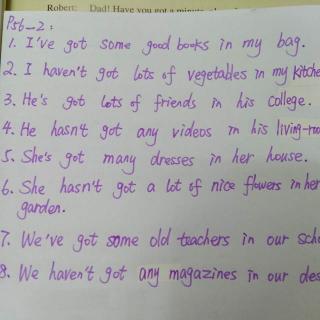 Robert: Dad! Have you got a
P56-2:
1. I've got some good books in my bag.
2. I haven't got lots of vegetables in my kitche
3. He's got lots of friends in his college.
4. He hasn't got any videos in his living-roo
5. She's got many dresses in her house.
6. She hasn't got a lot of nice flowers in her
garden.
7. We've got some old teachers in our scho
8. We haven't got any magazines in our des